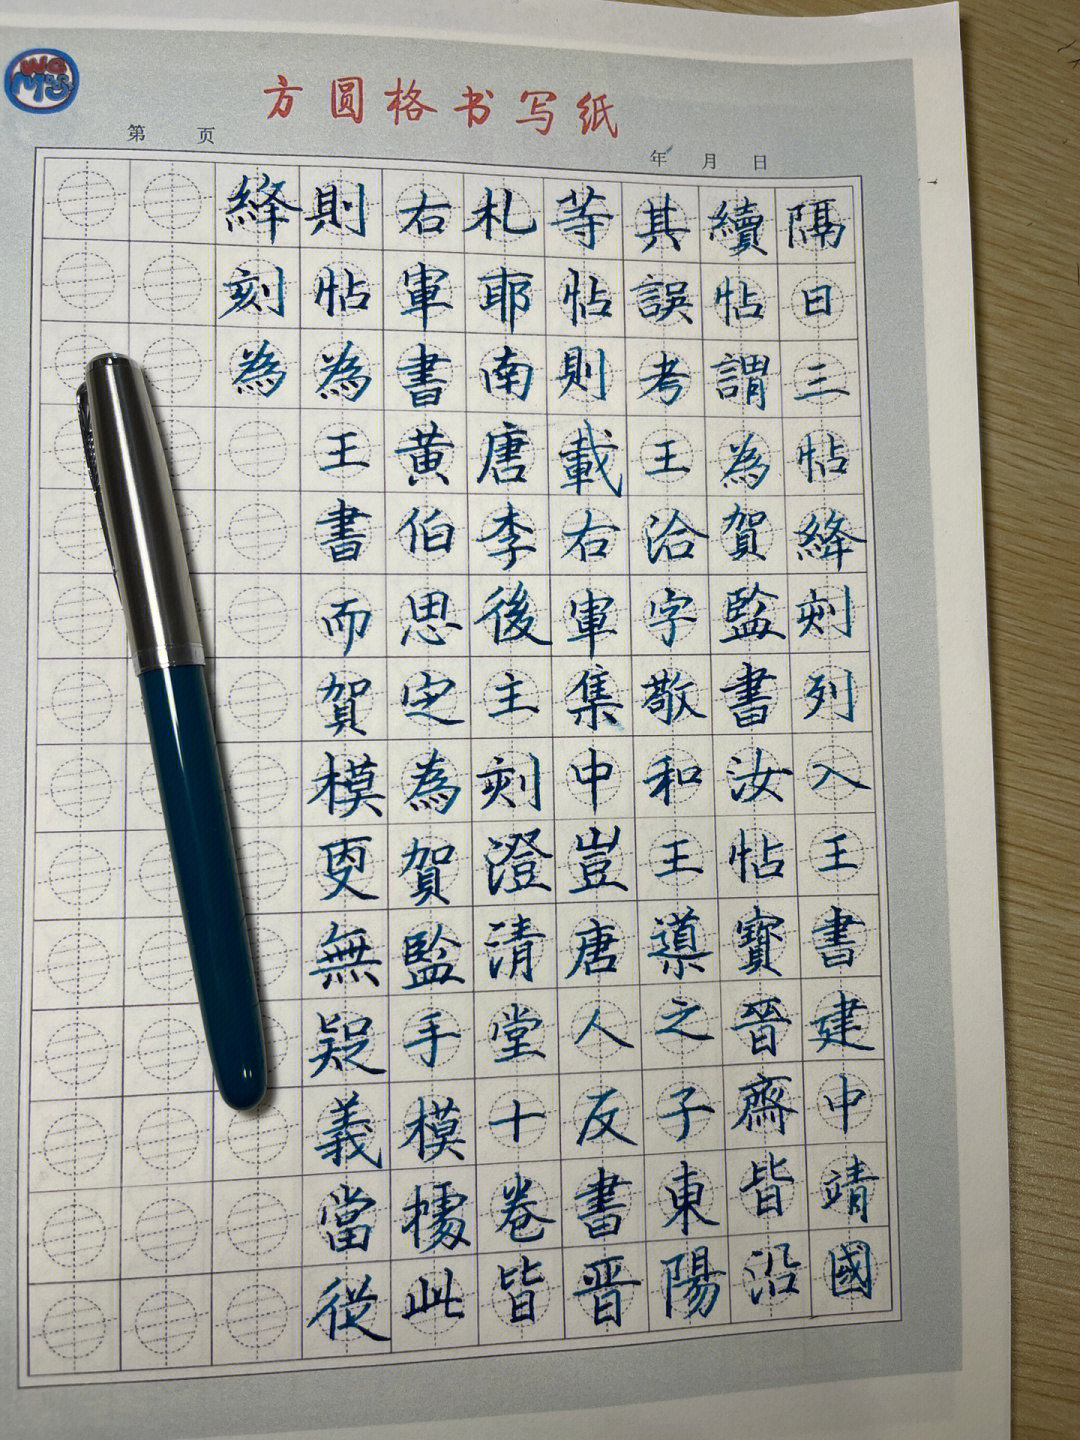 方圆格书写纸
第 页
年 月 日
隔日三帖絳刻列入王書建中靖國
續帖謂為賀監書汝帖寶晉齋皆沿
其誤考王洽字敬和王導之子東陽
等帖則載右軍集中豈唐人反書晋
札耶南唐李後主刻澄清堂十卷皆
右軍書黄伯思定為賀監手模據此
則帖為王書而賀模更無疑義當從
絳刻為